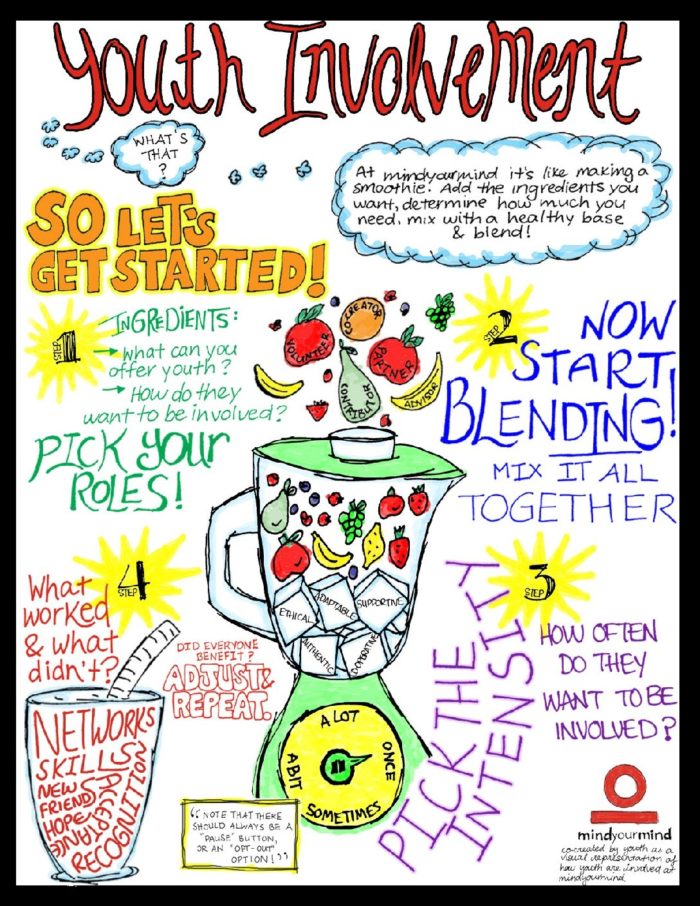 Youth Involvement
WHAT'S
THAT
?
At mindyourmind it's like making a
smoothie. Add the ingredients you
want, determine how much you
need, mix with a healthy base
& blend!
SO LET'S
GET STARTED!
STEP 1
INGREDIENTS:
→ what can you
offer youth?
→ How do they
want to be involved?
PICK YOUR
ROLES!
VOLUNTEER
CO-CREATOR
PARTNER
CONTRIBUTOR
ADVISOR
STEP 2
NOW
START
BLENDING!
MIX IT ALL
TOGETHER
ETHICAL
ADAPTABLE
SUPPORTIVE
AUTHENTIC
STEP 3
PICK THE
INTENSITY
HOW OFTEN
DO THEY
WANT TO BE
INVOLVED?
A LOT
ONCE
SOMETIMES
A BIT
STEP 4
What
worked
& what
didn't?
DID EVERYONE
BENEFIT?
ADJUST &
REPEAT.
NETWORKS
SKILLS
NEW
FRIENDS
HOPE
ACCEPTANCE
RECOGNITION
"NOTE THAT THERE
SHOULD ALWAYS BE A
"PAUSE" BUTTON,
OR AN "OPT-OUT"
OPTION!"
mindyourmind
co-created by youth as a
visual representation of
how youth are involved at
mindyourmind